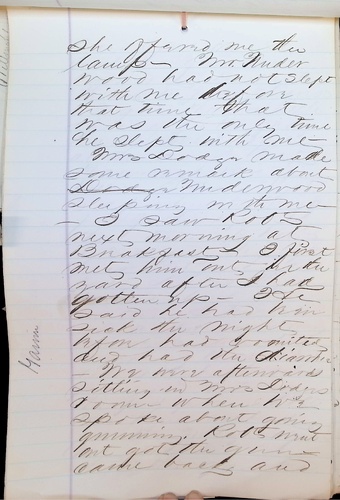 she offered me the
lamp - Mr Under
wood had not slept
with me before
that time That
was the only time
he slept with me
Mrs Dodge made
some remark about
Underwood
sleeping with me
- I saw Robt
next morning at
Breakfast - I first
met him out in the
yard after I had
gotten up - He
said he had been
sick the night
before had vomited
and had the diarrhea
- We were afterward
sitting in Mrs
room when we
spoke about going
gunning. Robt went
out got the gun
came back and